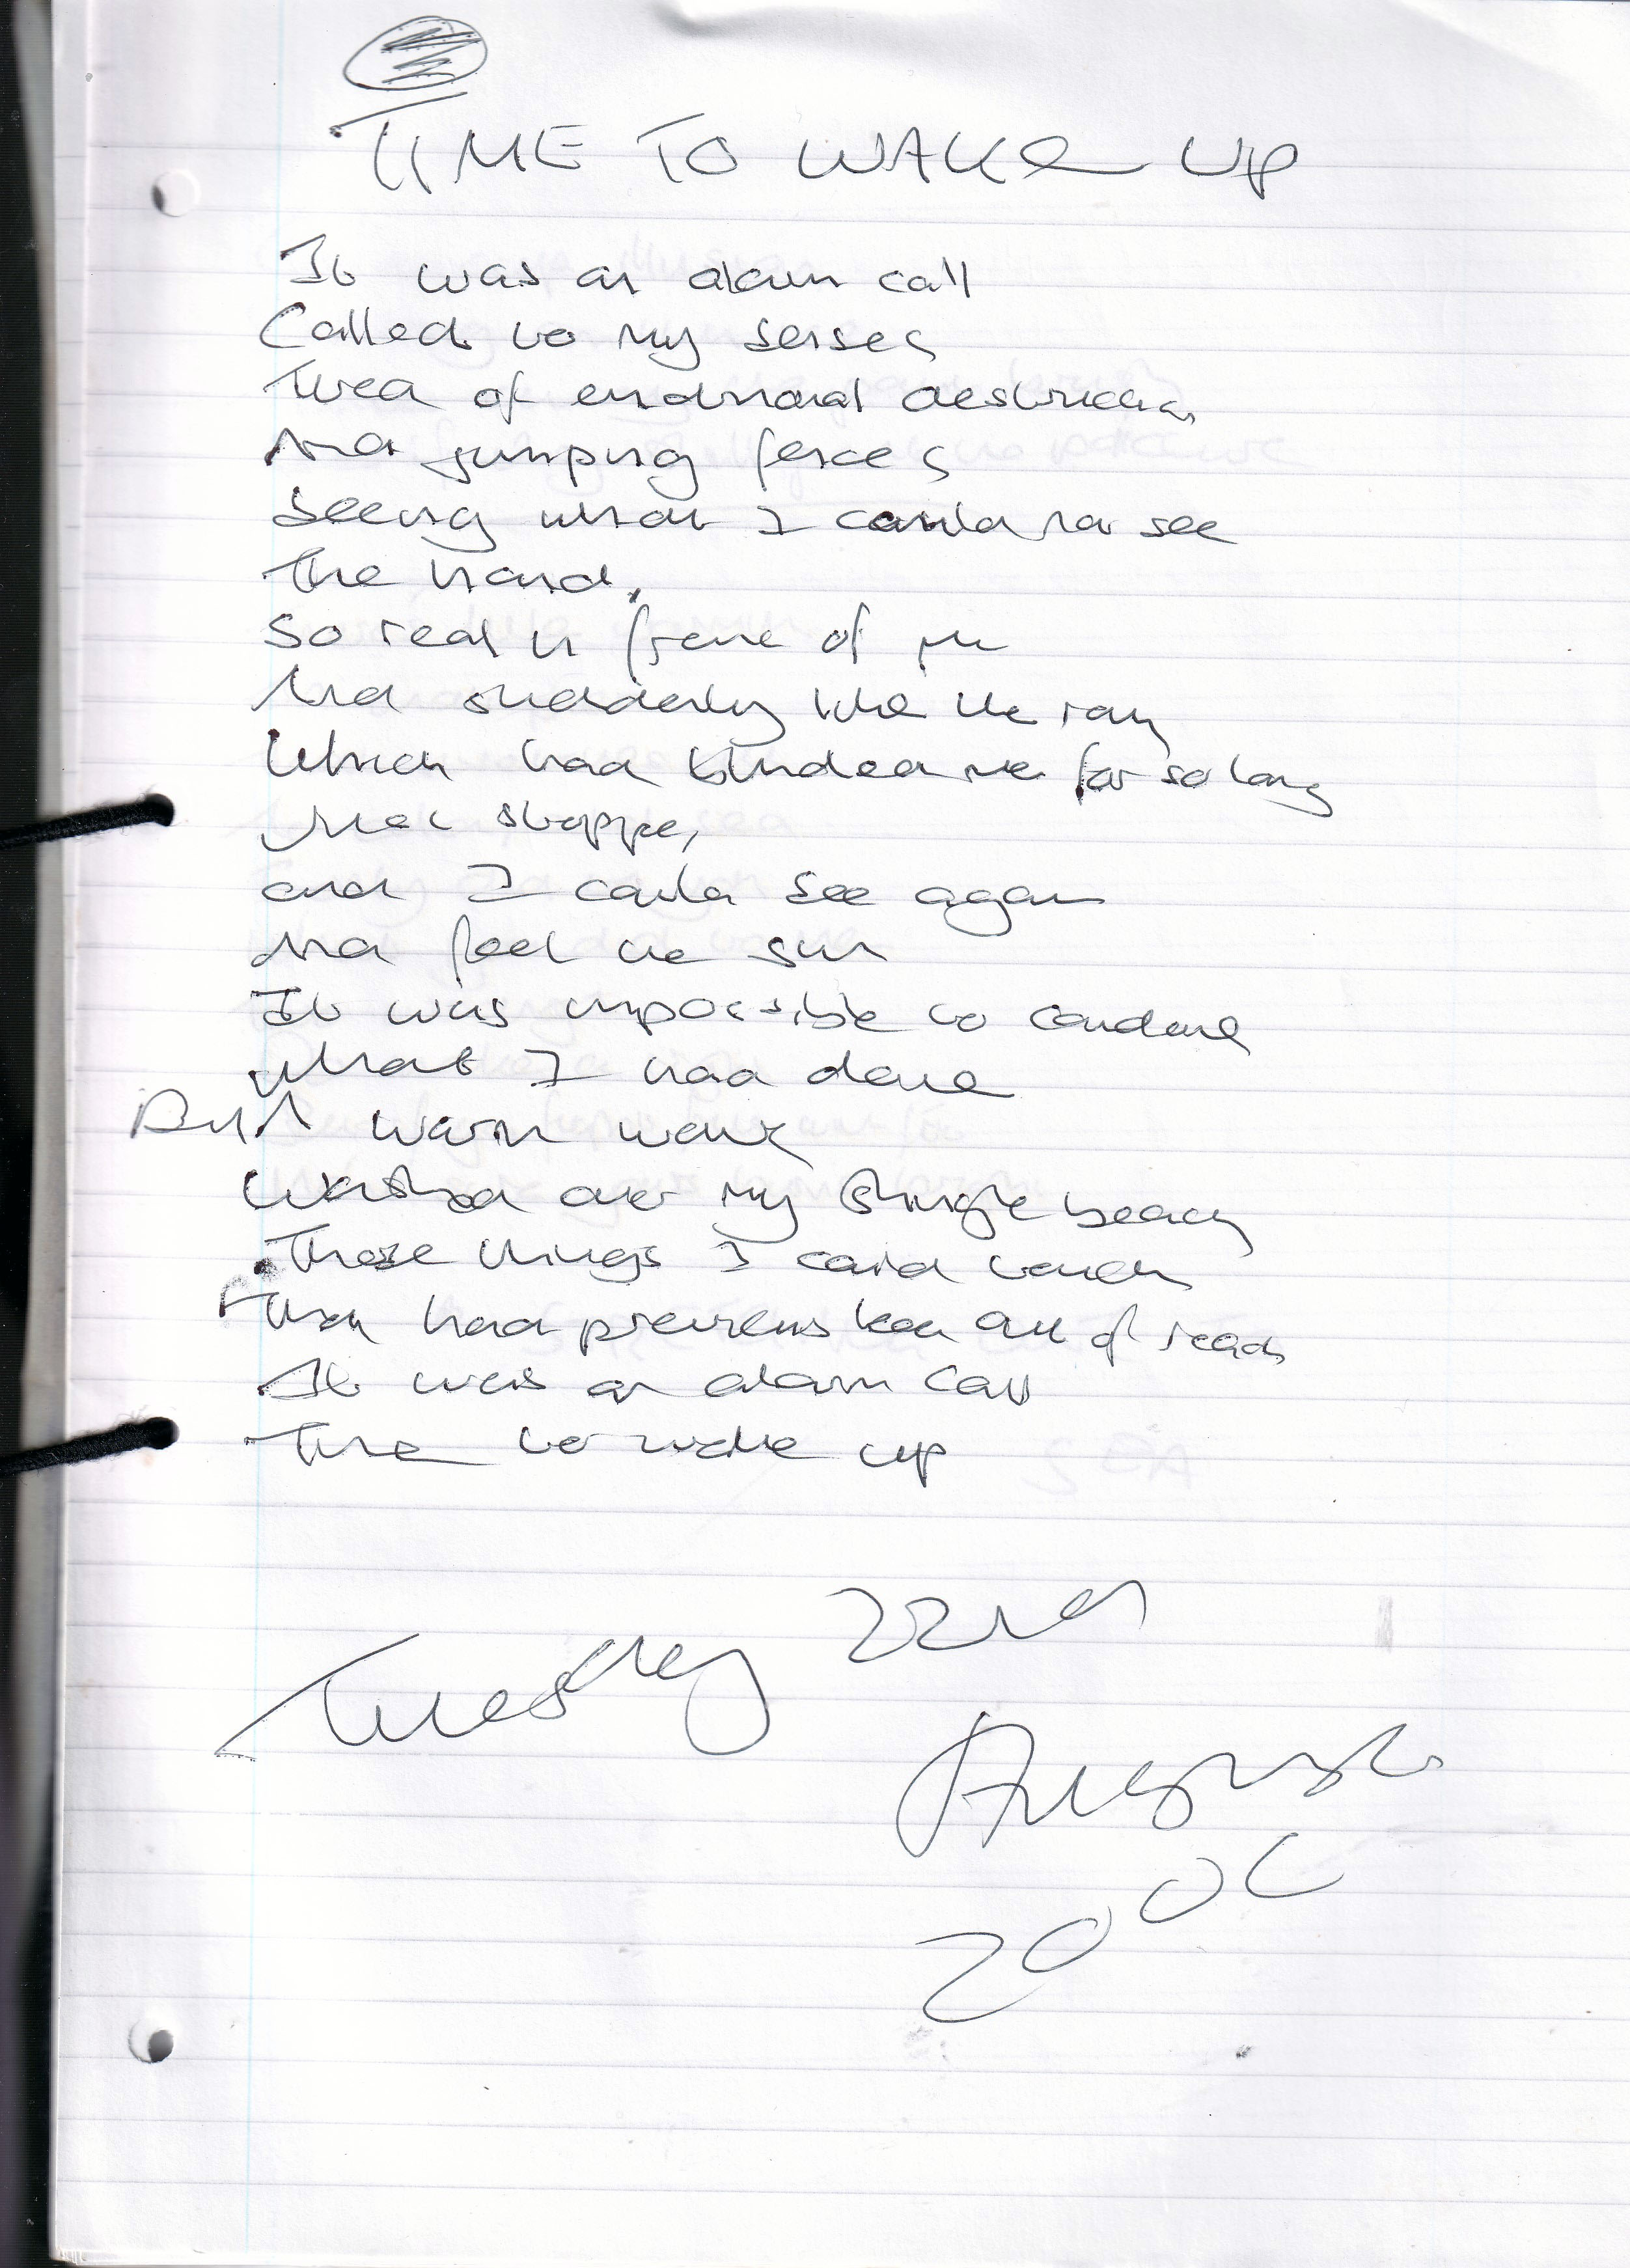 TIME TO WAKE UP
It was an alarm call
Called to my senses
Tired of emotional destruction
And jumping fences
Seeing what I could not see
The hand,
So real in front of me
And suddenly like the rain
Which had blinded me for so long
Had stopped,
and I could see again
And feel the sun
It was impossible to condone
What I had done
But A warm wave
Washed over my shingle beach
Those things I could touch
That had previous been out of reach
It was an alarm call
Time to wake up
Tuesday 22nd
August
2006